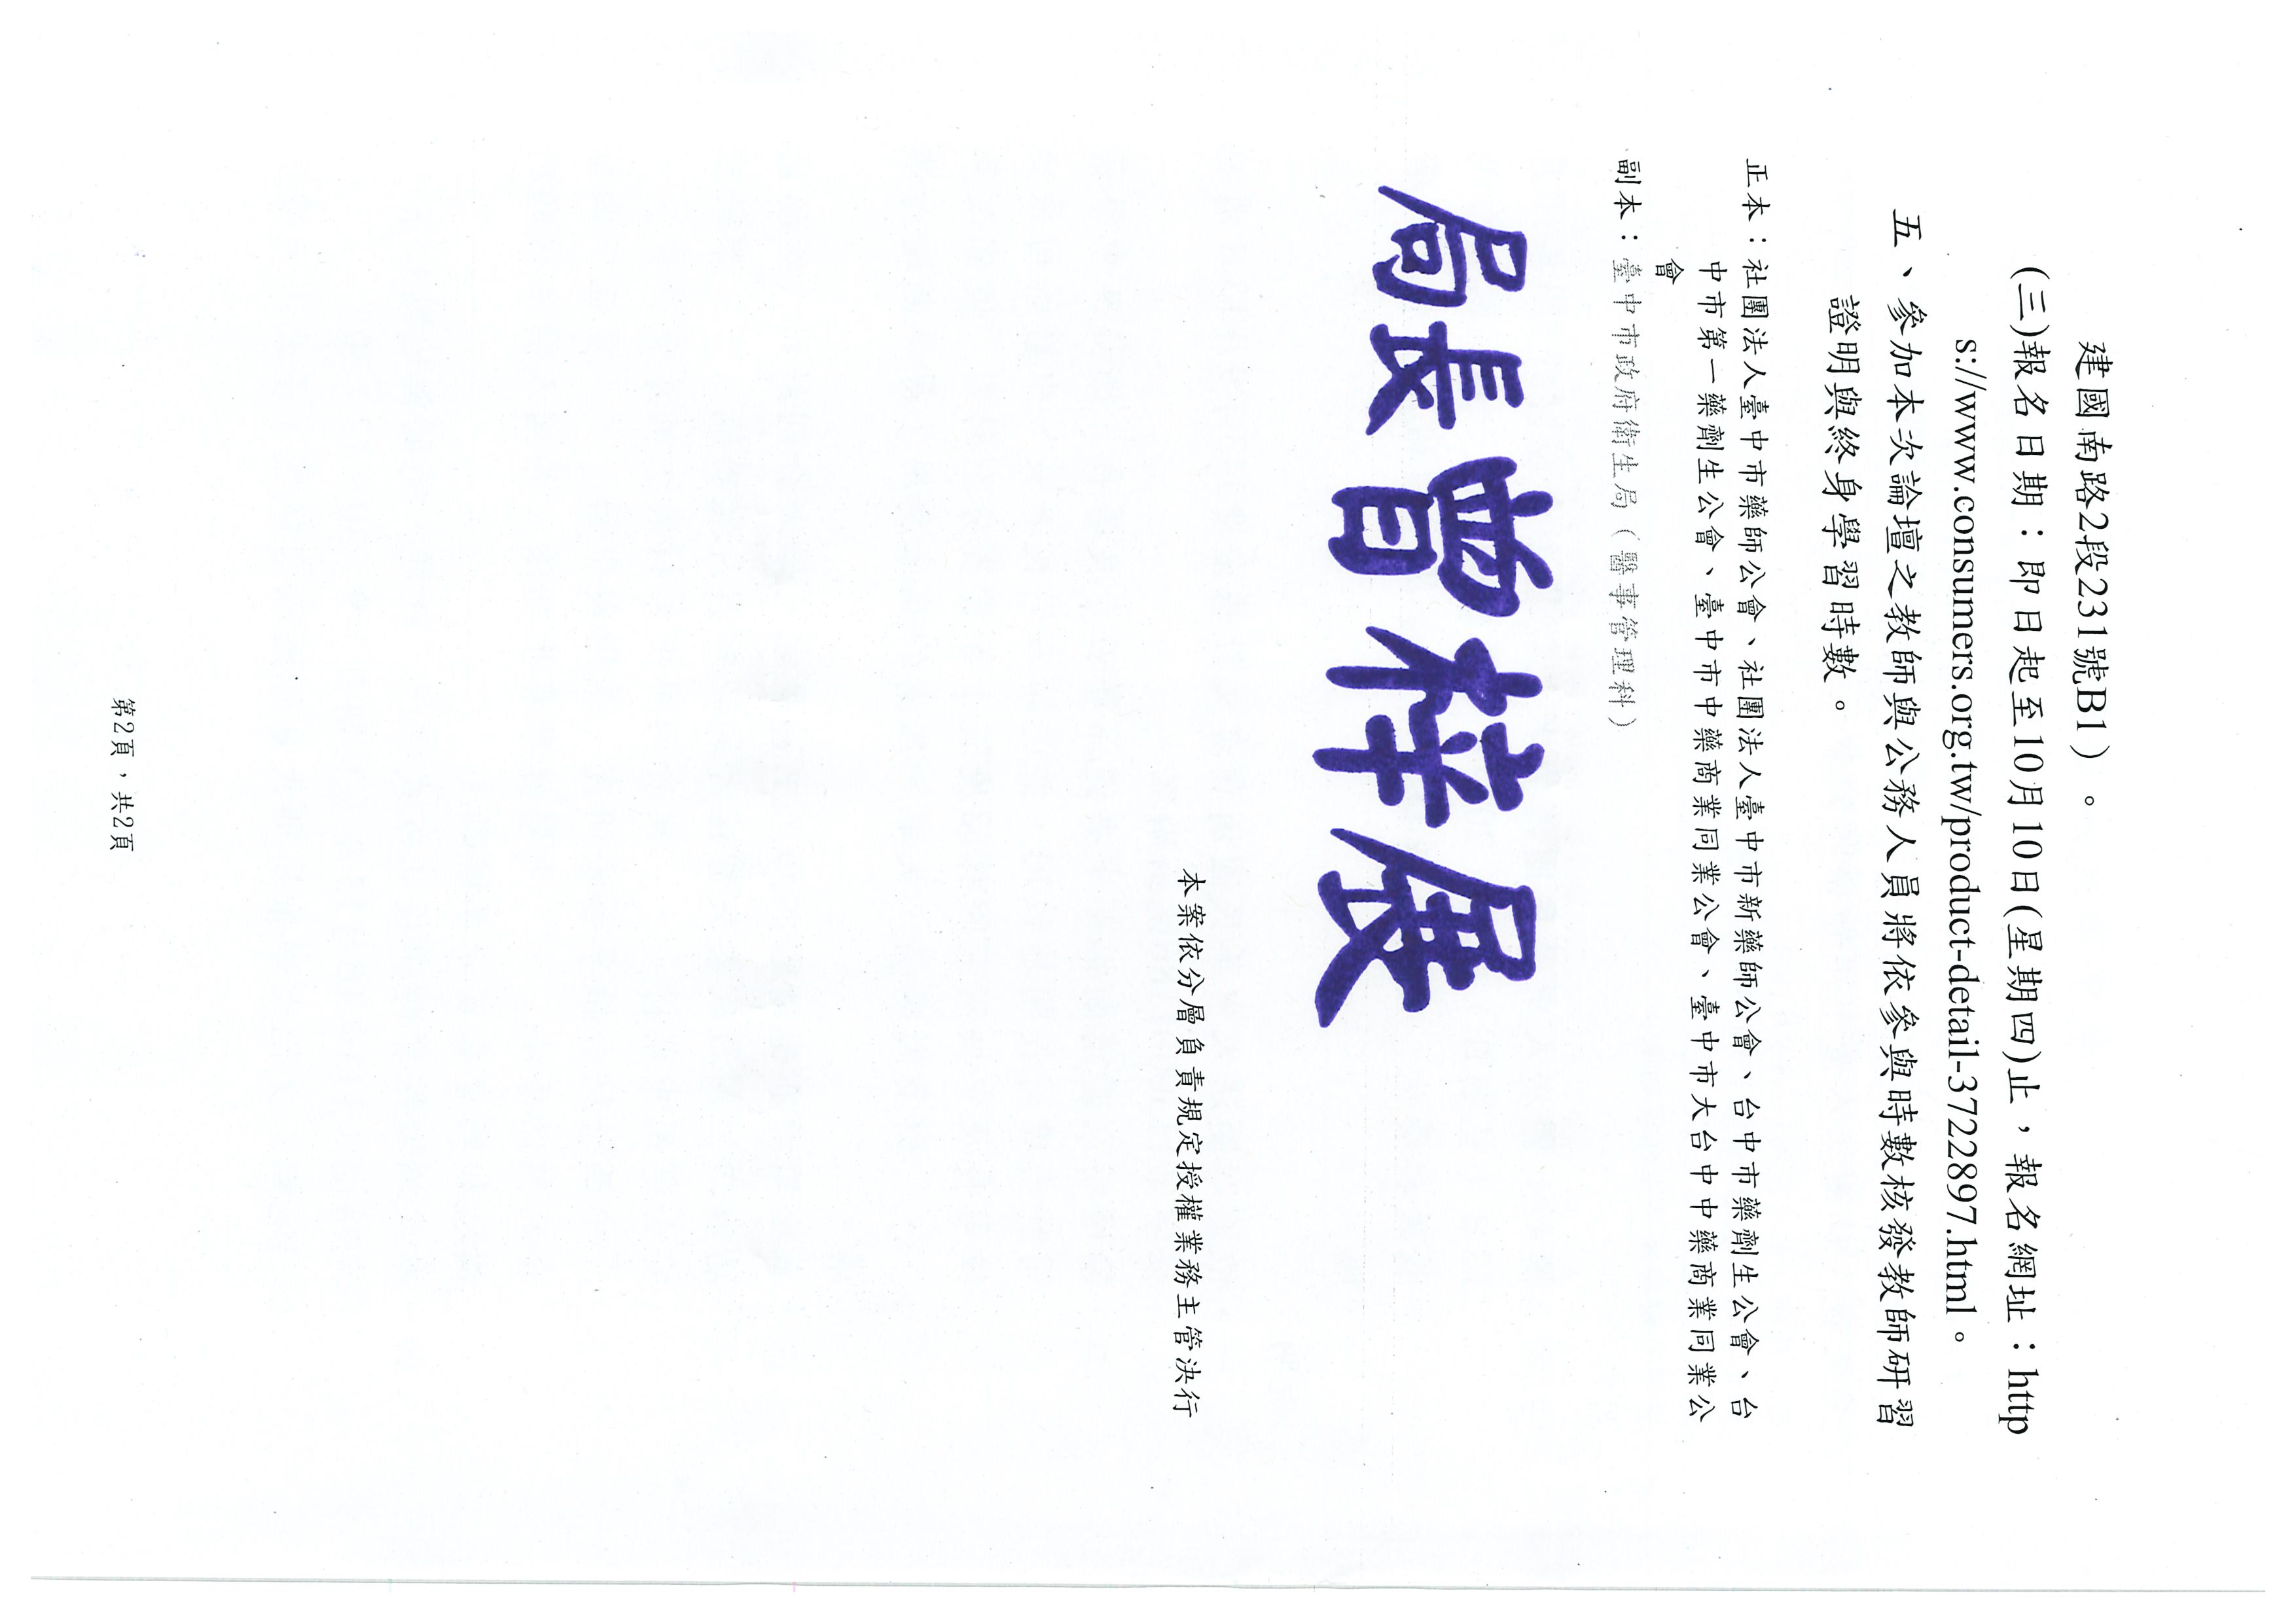 建國南路2段231號B1）。
(三)報名日期：即日起至10月10日(星期四)止，報名網址：http
s://www.consumers.org.tw/product-detail-3722897.html。
五、參加本次論壇之教師與公務人員將依參與時數核發教師研習
證明與終身學習時數。
正本：社團法人臺中市藥師公會、社團法人臺中市新藥師公會、台中市藥劑生公會、台
中市第一藥劑生公會、臺中市中藥商業同業公會、臺中市大台中中藥商業同業公
會
副本：臺中市政府衛生局（醫事管理科）
局長曾梓展
本案依分層負責規定授權業務主管決行
第2頁，共2頁